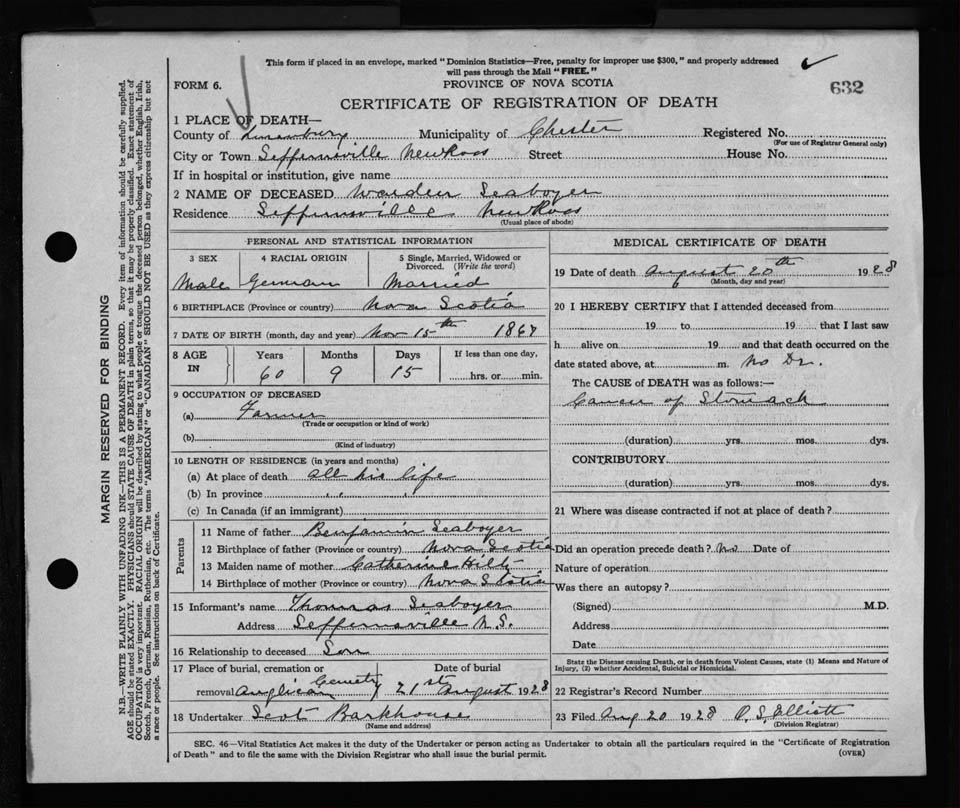 This form if placed in an envelope, marked "Dominion Statistics—Free, penalty for improper use $300," and properly addressed
will pass through the Mail "FREE."
FORM 6.
PROVINCE OF NOVA SCOTIA
632
CERTIFICATE OF REGISTRATION OF DEATH
1 PLACE OF DEATH—
County of Lunenburg Municipality of Chester Registered No.
(For use of Registrar General only)
City or Town Seffernsville New Ross Street House No.
If in hospital or institution, give name
2 NAME OF DECEASED Warden Seaboyer
Residence Seffernsville New Ross
(Usual place of abode)
PERSONAL AND STATISTICAL INFORMATION
3 SEX 4 RACIAL ORIGIN 5 Single, Married, Widowed or
Divorced. (Write the word)
Male German Married
6 BIRTHPLACE (Province or country) Nova Scotia
7 DATE OF BIRTH (month, day and year) Nov 15th 1867
8 AGE IN Years Months Days If less than one day,
60 9 15 hrs. or min.
9 OCCUPATION OF DECEASED
(a) Farmer
(Trade or occupation or kind of work)
(b)
(Kind of industry)
10 LENGTH OF RESIDENCE (in years and months)
(a) At place of death all his life
(b) In province " "
(c) In Canada (if an immigrant)
Parents
11 Name of father Benjamin Seaboyer
12 Birthplace of father (Province or country) Nova Scotia
13 Maiden name of mother Catherine Hiltz
14 Birthplace of mother (Province or country) Nova Scotia
15 Informant's name Thomas Seaboyer
Address Seffernsville N.S.
16 Relationship to deceased Son
17 Place of burial, cremation or Date of burial
removal Anglican Cemetry 21st August 1928
18 Undertaker Scot Barkhouse
(Name and address)
MEDICAL CERTIFICATE OF DEATH
19 Date of death August 20th 1928
(Month, day and year)
20 I HEREBY CERTIFY that I attended deceased from
19 to 19 that I last saw
h alive on 19 and that death occurred on the
date stated above, at m. No Dr.
The CAUSE of DEATH was as follows:—
Cancer of Stomach
(duration) yrs. mos. dys.
CONTRIBUTORY
(duration) yrs. mos. dys.
21 Where was disease contracted if not at place of death?
Did an operation precede death? no Date of
Nature of operation
Was there an autopsy?
(Signed) M.D.
Address
Date
State the Disease causing Death, or in death from Violent Causes, state (1) Means and Nature of
Injury, (2) whether Accidental, Suicidal or Homicidal.
22 Registrar's Record Number
23 Filed Aug 20 1928 P. S. Elliott
(Division Registrar)
SEC. 46—Vital Statistics Act makes it the duty of the Undertaker or person acting as Undertaker to obtain all the particulars required in the "Certificate of Registration
of Death" and to file the same with the Division Registrar who shall issue the burial permit.
(OVER)
MARGIN RESERVED FOR BINDING
N.B.—WRITE PLAINLY WITH UNFADING INK—THIS IS A PERMANENT RECORD. Every item of information should be carefully supplied.
AGE should be stated EXACTLY. PHYSICIANS should STATE CAUSE OF DEATH in plain terms, so that it may be properly classified. Exact statement of
OCCUPATION is very important. RACIAL ORIGIN will be described by stating to what people or tongue the deceased person belonged, whether English, Irish,
Scotch, French, German, Russian, Ruthenian, etc. The terms "AMERICAN" or "CANADIAN" SHOULD NOT BE USED as they express citizenship but not
a race or people. See instructions on back of Certificate.